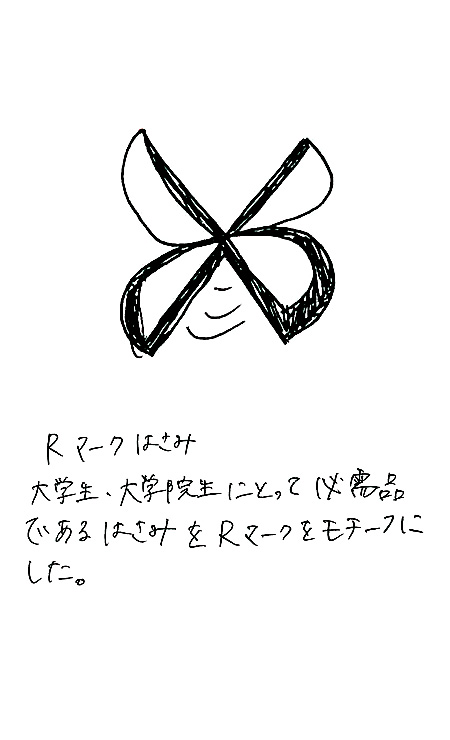 Rマークはさみ
大学生、大学院生にとって必需品
であるはさみをRマークをモチーフに
した。